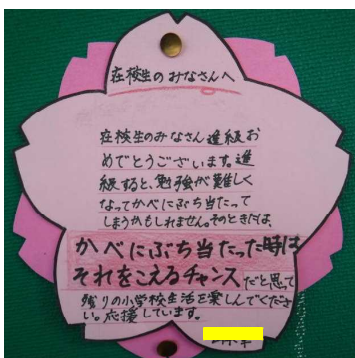 在校生のみなさんへ
在校生のみなさん進級お
めでとうございます。進
級すると、勉強が難しく
なってかべにぶち当たって
しまうかもしれません。そのときは、
かべにぶち当たった時は
それをこえるチャンスだと思って
残りの小学校生活を楽しんでくださ
い。応援しています。